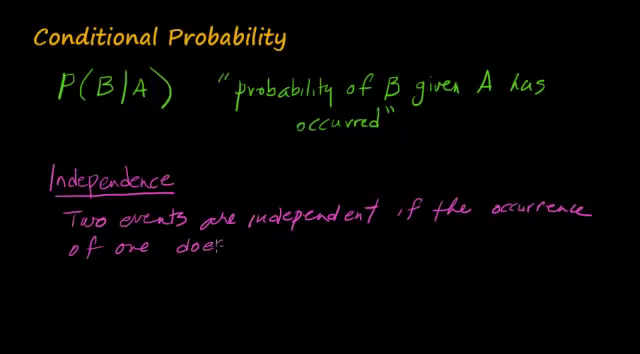 Conditional Probability
P(B/A) "probability of B given A has
occurred"
Independence
Two events are independent if the occurrence
of one does